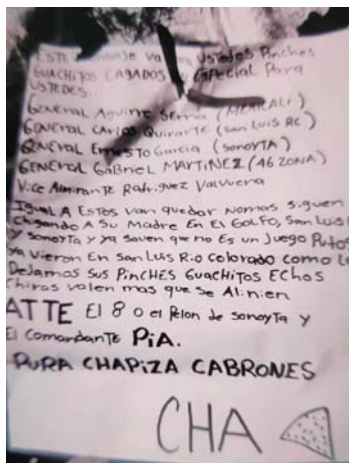 ESTE mensaje va USTEDES Pinches
GUACHITOS CAGADOS y ESPECIAL Para
USTEDES:
GENERAL Aguirre Serna (MEXICALI)
GENERAL Carlos Quirarte (San Luis RC)
GENERAL ErnesTo Garcia (sonoyTA)
GENERAL GABriel MARTiNEZ (46 ZONA)
Vice Almirante Rodriguez Valvuena
Igual A Estos van quedar Nomas siguen
chigando A Su Madre En El GOLFO, San Luis
y SonoyTa y ya saven que no Es un Juego Putos
ya Vieron En San Luis Rio Colorado como Le
DeJamos Sus PiNCHES Guachitos EChos
Chiros valen mas que Se Alinien
ATTE El 8 o el Pelon de sonoyTa y
El comandanTe PiA.
PURA CHAPiZA CABRONES
CHA